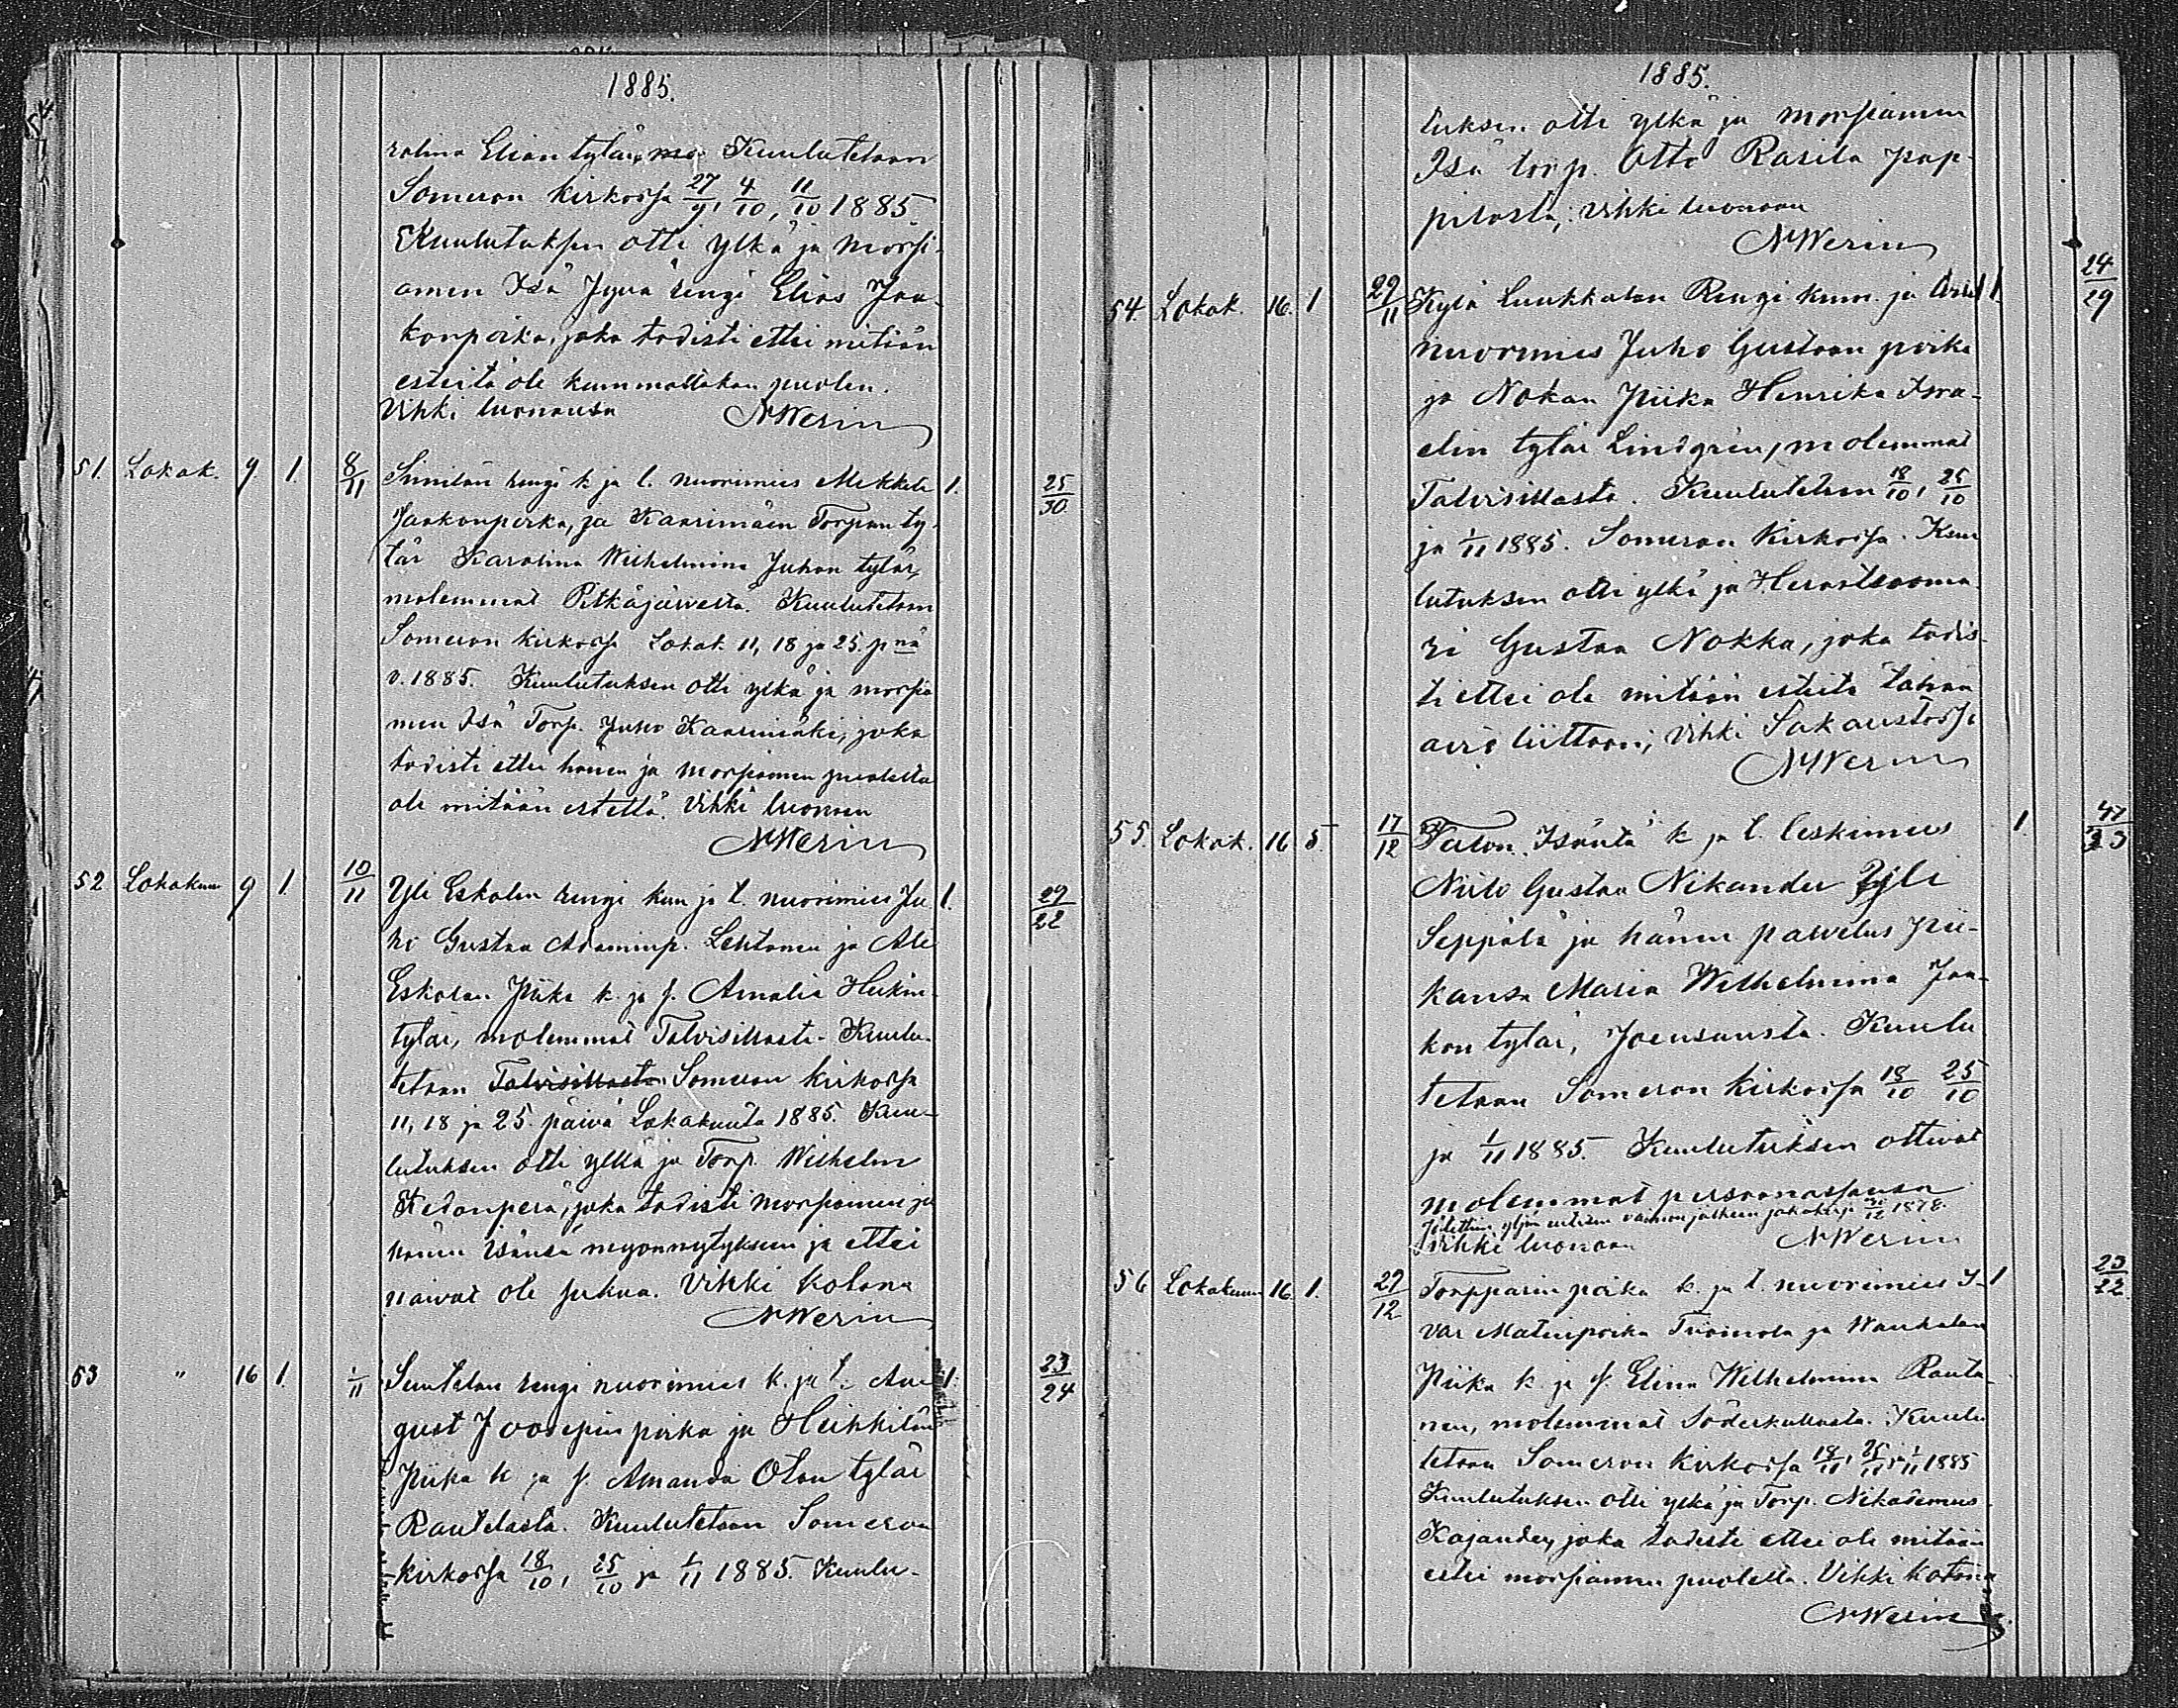 1885.
rolina Elian tytär, Kuulutetaan
Someron kirkossa 27/9, 4/10, 11/10 1885
Kuulutuksen otti ylkä ja morsi-
amen Isä Jyvä rengi Elias Jaa-
konpoika, joka todisti ettei mitään
esteitä ole kummaltakan puolen.
Vihki luonansa NWerin
51. Lokak. 9. 1. 8/11 rengi k ja l. nuorimies Mikkeli 1. 25/30
Jaakonpoika, ja Kaarimäen Torpan ty-
tär Karolina Wilhelmina Juhon tytär,
molemmat Pitkäjärvestä. Kuulutetaan
Someron kirkossa Lokak. 11, 18 ja 25. pnä
v. 1885. Kuulutuksen otti ylkä ja morsia
men Isä Torp. Juho Kaarimäki, joka
todisti ettei hänen ja morsiamen puolelta
ole mitään estettä. Vihki luonan
NWerin
52 Lokakuu 9 1. 10/11 Yli Eskolan rengi kun ja l. nuorimies Ju 1. 29/22
ho Gustaa Adaminp. Lehtonen ja Ala
Eskolan Piika k. ja s. Amalia Heikin-
tytär, molemmat Talvisillasta. Kuulu-
tetaan Talvisillasta Someron kirkossa
11, 18 ja 25. päivä Lokakuuta 1885. Kuu-
lutuksen otti ylkä ja Torp. Wilhelm
Kedonperä, joka todisti morsiamen ja
hänen isänsä myönnytyksen ja ettei
naivat ole sukua. Vihki kotona
NWerin
53 " 16 1. 1/11 Suutelan rengi nuorimies k. ja l. Au- 1. 23/24
gust Joosepin poika ja Heikkilän
Piika k ja s. Amanda Otan tytär
Rautelasta. Kuulutetaan Someron
kirkossa 18/10, 25/10 ja 1/11 1885. Kuulu-
1885.
tuksen otti ylkä ja morsiamen
Isä torp. Otto Rasila Pap-
pilasta; vihki luonaan
NWerin
54. Lokak. 16. 1 29/11 Kylä Luukkalan Rengi kunn. ja 1 24/29
nuorimies Juho Gustaan poika
ja Nokan Piika Henrika Isra-
elin tytär Lindgrén, molemmat
Talvisillasta. Kuulutetaan 18/10, 25/10
ja 1/11 1885. Someron kirkossa. Kuu
lutuksen otti ylkä ja Herastuoma-
ri Gustaa Nokka, joka todis-
ti ettei ole mitään esteitä tähän
avio liittoon; vihki Sakaristossa
NWerin
55. Lokak. 16 5. 17/12 Talon Isäntä k ja l. leskimies 1.
Niilo Gustaa Nikander Yli
Seppälä ja hänen palvelus pii-
kansa Maria Wilhelmina Jaa-
kon tytär, Joensuusta. Kuulu
tetaan Someron kirkossa 18/10 25/10
ja 1/11 1885. Kuulutuksen ottivat
molemmat persoonassansa
vaimon jälkeen 1878.
Vihki luonaan NWerin
56 Lokakuu 16. 1. 29/12 Torpparin poika k. ja l. nuorimies I- 1 23/22
var Matinpoika Tiiamola ja Wanhalan
Piika k. ja s. Elina Wilhelmina Rauta-
nen, molemmat Söderkullasta. Kuulu
tetaan Someron kirkossa 18/11, 25/11, 1/11 1885
Kuulutuksen otti ylkä ja Torp. Nikodemus
Kajander, joka todisti ettei ole mitään
estei morsiamen puolelta. Vihki kotona
NWerin